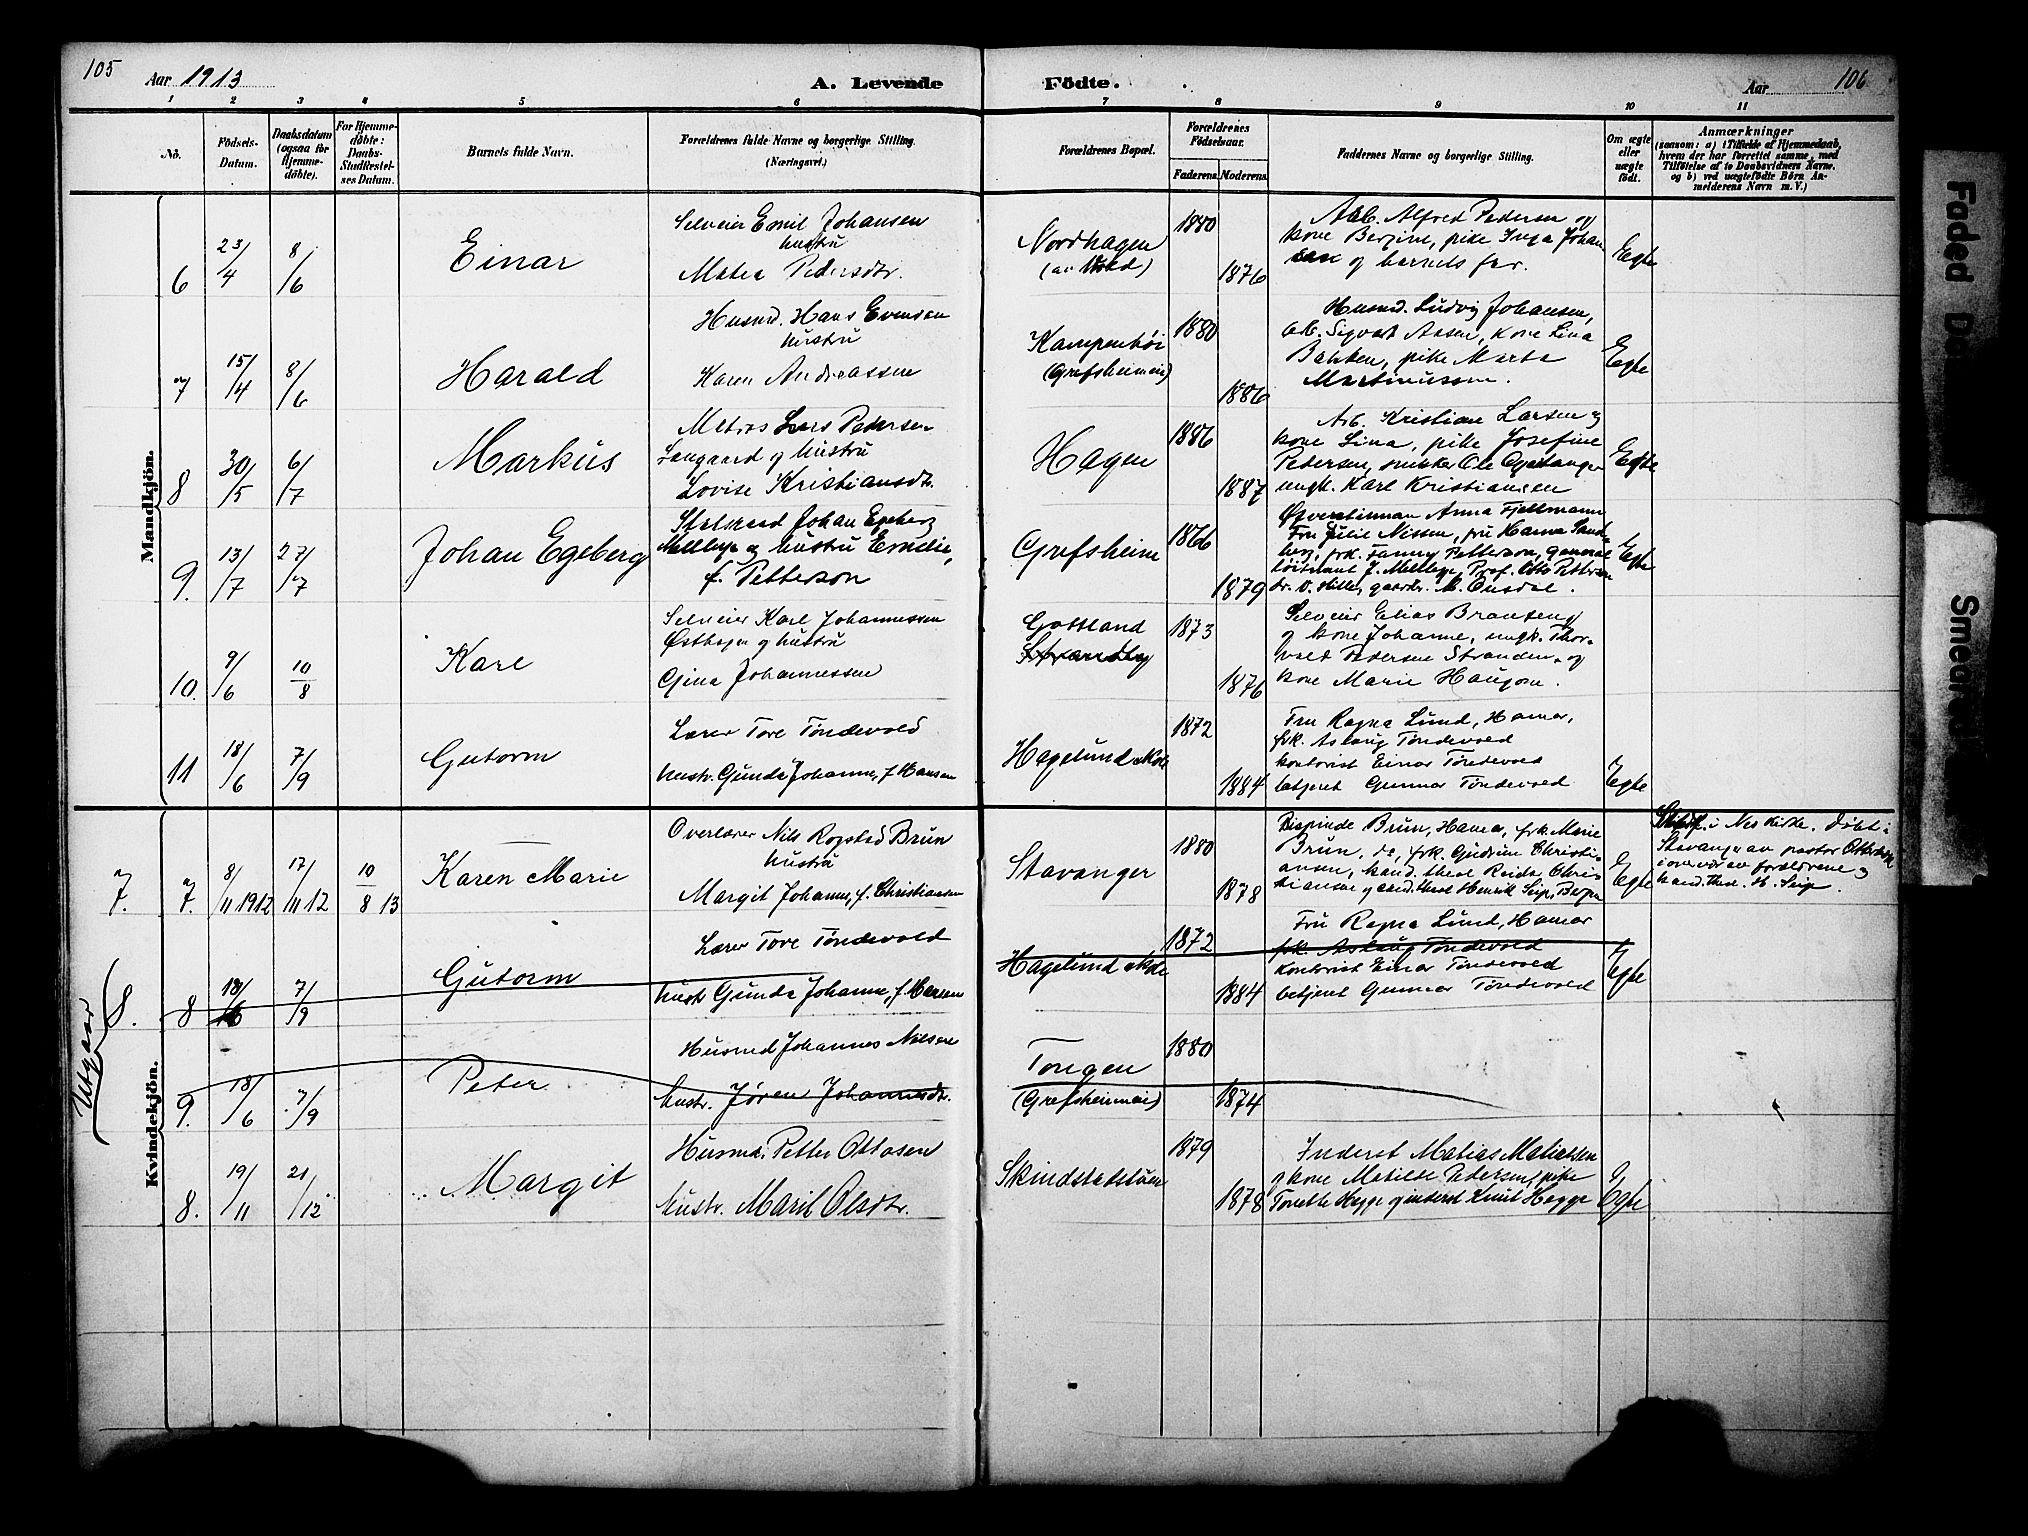 105
Aar 1913
A. Levende
Födte.
Aar
106
1 2 3 4 5 6 7 8 9 10 11
No.
Födsels-Datum.
Daabsdatum (ogsaa for Hjemme-döbte).
For Hjemme-döbte: Daabs-Stadfæstel-ses Datum.
Barnets fulde Navn.
Forældrenes fulde Navne og borgerlige Stilling. (Næringsvei.)
Forældrenes Bopæl.
Forældrenes Födselsaar.
Faderens.
Moderens.
Faddernes Navne og borgerlige Stilling.
Om ægte eller uægte födt.
Anmærkninger
(saasom: a) i Tilfælde af Hjemmedaab,
hvem der har forrettet samme, med
Tilföielse af to Daabsvidners Navne.
og b) ved uægtefödte Börn An-
melderens Navn m. V.)
Mandkjön.
6
23/4
8/6
Einar
Selveier Emil Johansen
hustru
Matea Pedersdtr.
Nordhagen
1880
1876
Arb. Alfred Pedersen og
kone Bergine, pike Inga Johan
sen og barnets far.
Egte
7
15/4
8/6
Harald
Husmd. Hans Evensen
hustru
Karen Andreassen
Kampenhøi
(Grefsheimei)
1880
1886
Husmd. Ludvig Johansen,
arb. Sigvart Aasen, kone Lina
Bakken, pike Marte
Martinussen.
Egte
8
30/5
6/7
Markus
Matros Lars Pedersen
Langaard og hustru
Lovise Kristiansdtr.
Hagen
1886
1887
Arb. Kristian Larsen og
kone Lina, pike Josefine
Pedersen, snikker Ole
ungk. Karl Kristiansen
Egte
9.
13/7
27/7
Johan Egeberg
Statsraad Johan Egeberg
Mellbye og hustru Emilie,
f. Petterson
Grefsheim
1866
1879
Anna Fjellmann
Fru Julie Nissen, fru Hanna Sand-
berg, frk. Fanny Petterson, general
løitnant J. Mellbye, Prof. Otto Petterson
dr. O. Hille, gaardbr. M. Onsdal.
Egte
10.
9/6
10/8
Kare
Selveier Karl Johannessen
Østhagen og hustru
Gina Johannessen
Gottland
Strandby
1873
1876
Selveier Elias Branseng
og kone Johanne, ungk. Thor-
vald Pedersen Stranden og
kone Marie Haugom.
11
18/6
7/9
Gutorm
Lærer Tore Tøndevold
hustr. Gunda Johanne, f. Hansen
Hagelund skole
1872
1884
Fru Ragna Lund, Hamar,
frk. Aslaug Tøndevold
kontorist Einar Tøndevold
betjent Gunnar Tøndevold
Egte
Utgaar
Kvindekjön.
7.
7.
8/11 1912
17/11 12
10/8 13
Karen Marie
Overlærer Nils Rogstad Brun
hustru
Margit Johanne, f. Christiansen
Stavanger
1880
1878
Bispinde Brun, Hamar, frk. Marie
Brun, do, frk. Gudrun Christi-
ansen, kand. theol Reidar Chris-
tiansen og cand. theol Henrik Seip, Bergen
Egte
i Nes kirke. Døbt i
Stavanger av pastor
i overvær av forældrene og
kand. theol. H. Seip.
8.
8
18/6
7/9
Gutorm
Lærer Tore Tøndevold
hustr Gunda Johanne, f. Hansen
Hagelund skole
1872
1884
Fru Ragna Lund, Hamar
frk. Aslaug Tøndevold
kontorist Einar Tøndevold
betjent Gunnar Tøndevold
Egte
9.
18/6
7/9
Peter
Husmd Johannes Nilsen
hustr. Jøren Johannesdtr.
Tongen
(Grefsheimei)
1880
1874
8.
19/11
21/12
Margit
Husmd. Petter Ottosen
hustr. Marit Olsdtr.
Skindstadstuen
1879
1878
Inderst Matias Matiassen
og kone Matilde Pedersen, pike
Tonette Hegge og inderst Knut Hegge
Egte
Faded
Smeared